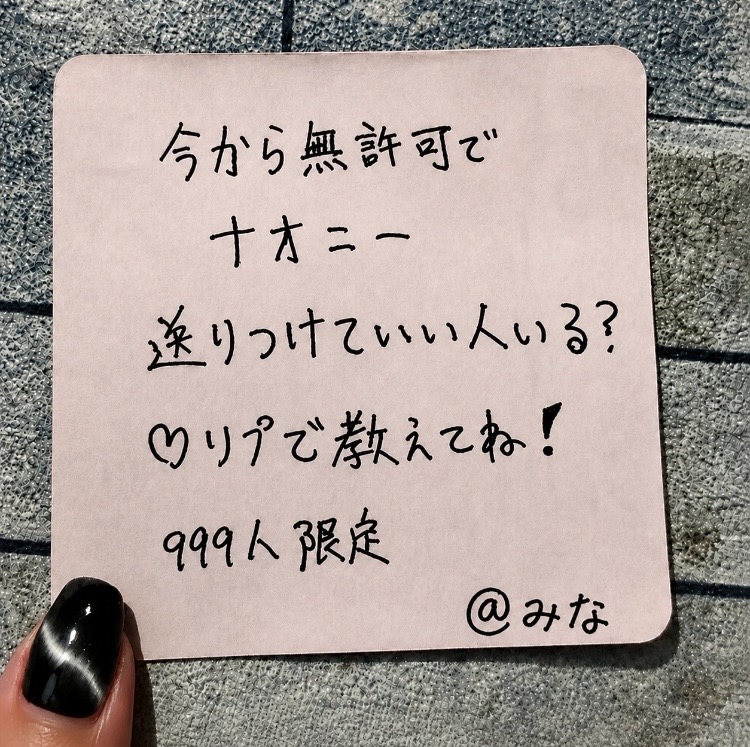 今から無許可で
ナオニー
送りつけていい人いる?
♡リプで教えてね!
999人限定
@みな